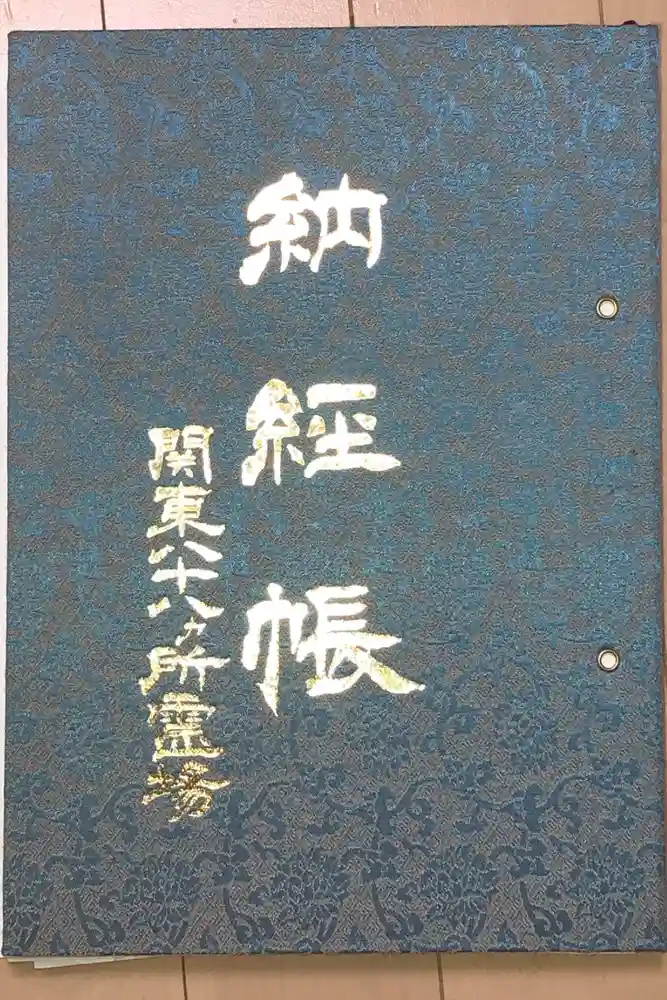 納経帳
関東八十八ヶ所霊場